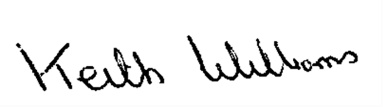 Keith Williams